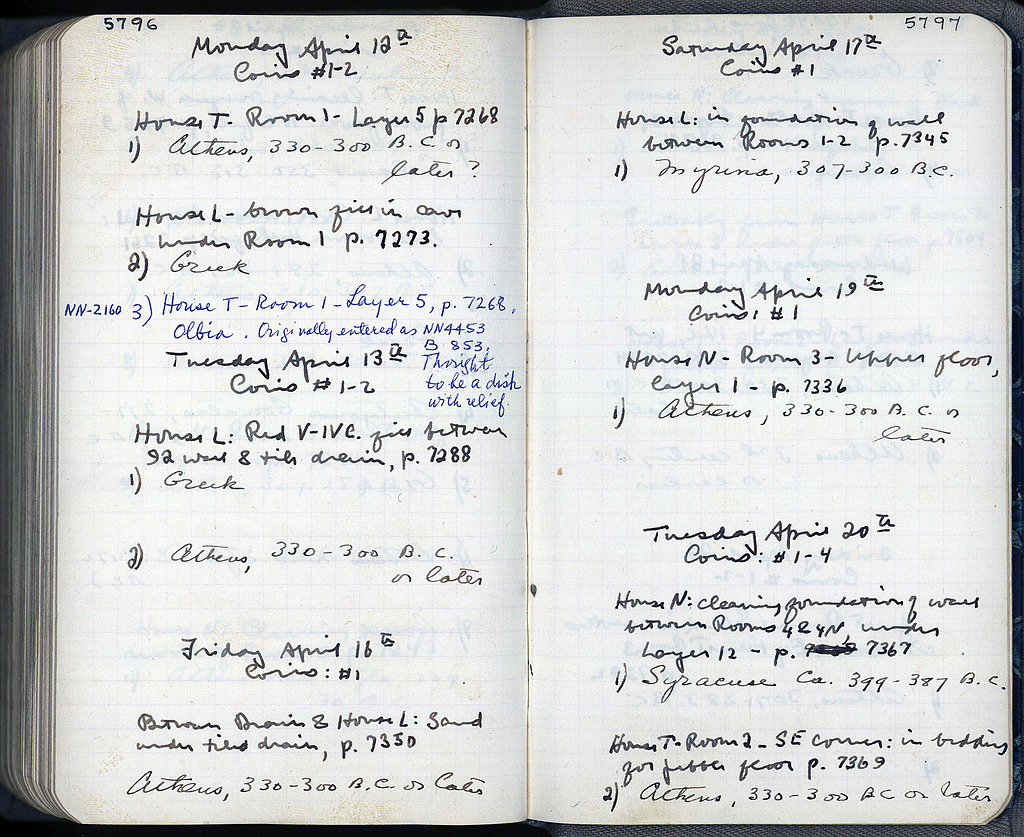 5796
Monday April 12th
Coins #1-2
House T- Room 1- Layer 5 p 7268
1) Athens, 330-300 B.C. or
later?
House L- brown fill in cave
under Room 1 p. 7273.
2) Greek
NN-2160 3) House T-Room 1-Layer 5, p. 7268,
Olbia. Originally entered as NN4453
B 853.
Thought
to be a dish
with relief.
Tuesday April 13th
Coins #1-2
House L: Red V-IVC. fill between
92 wall & tile drain, p. 7288
1) Greek
2) Athens, 330-300 B.C.
or later
Friday April 16th
Coins: #1
Between Drain & House L: Sand
under tiled drain, p. 7350
Athens, 330-300 B.C. or later
5797
Saturday April 17th
Coins #1
House L: in foundation of wall
between Rooms 1-2 p. 7345
1) Myrina, 307-300 B.C.
Monday April 19th
Coins: #1
House N- Room 3- Upper floor,
layer 1- p. 7336
1) Athens, 330-300 B.C. or
later
Tuesday April 20th
Coins: #1-4
House N: cleaning foundation of wall
between Rooms 4 & 4N, under
Layer 12 - p. 7367
1) Syracuse Ca. 399-387 B.C.
House T-Room 2-SE corner: in bedding
for pebble floor p. 7369
2) Athens, 330-300 BC or later